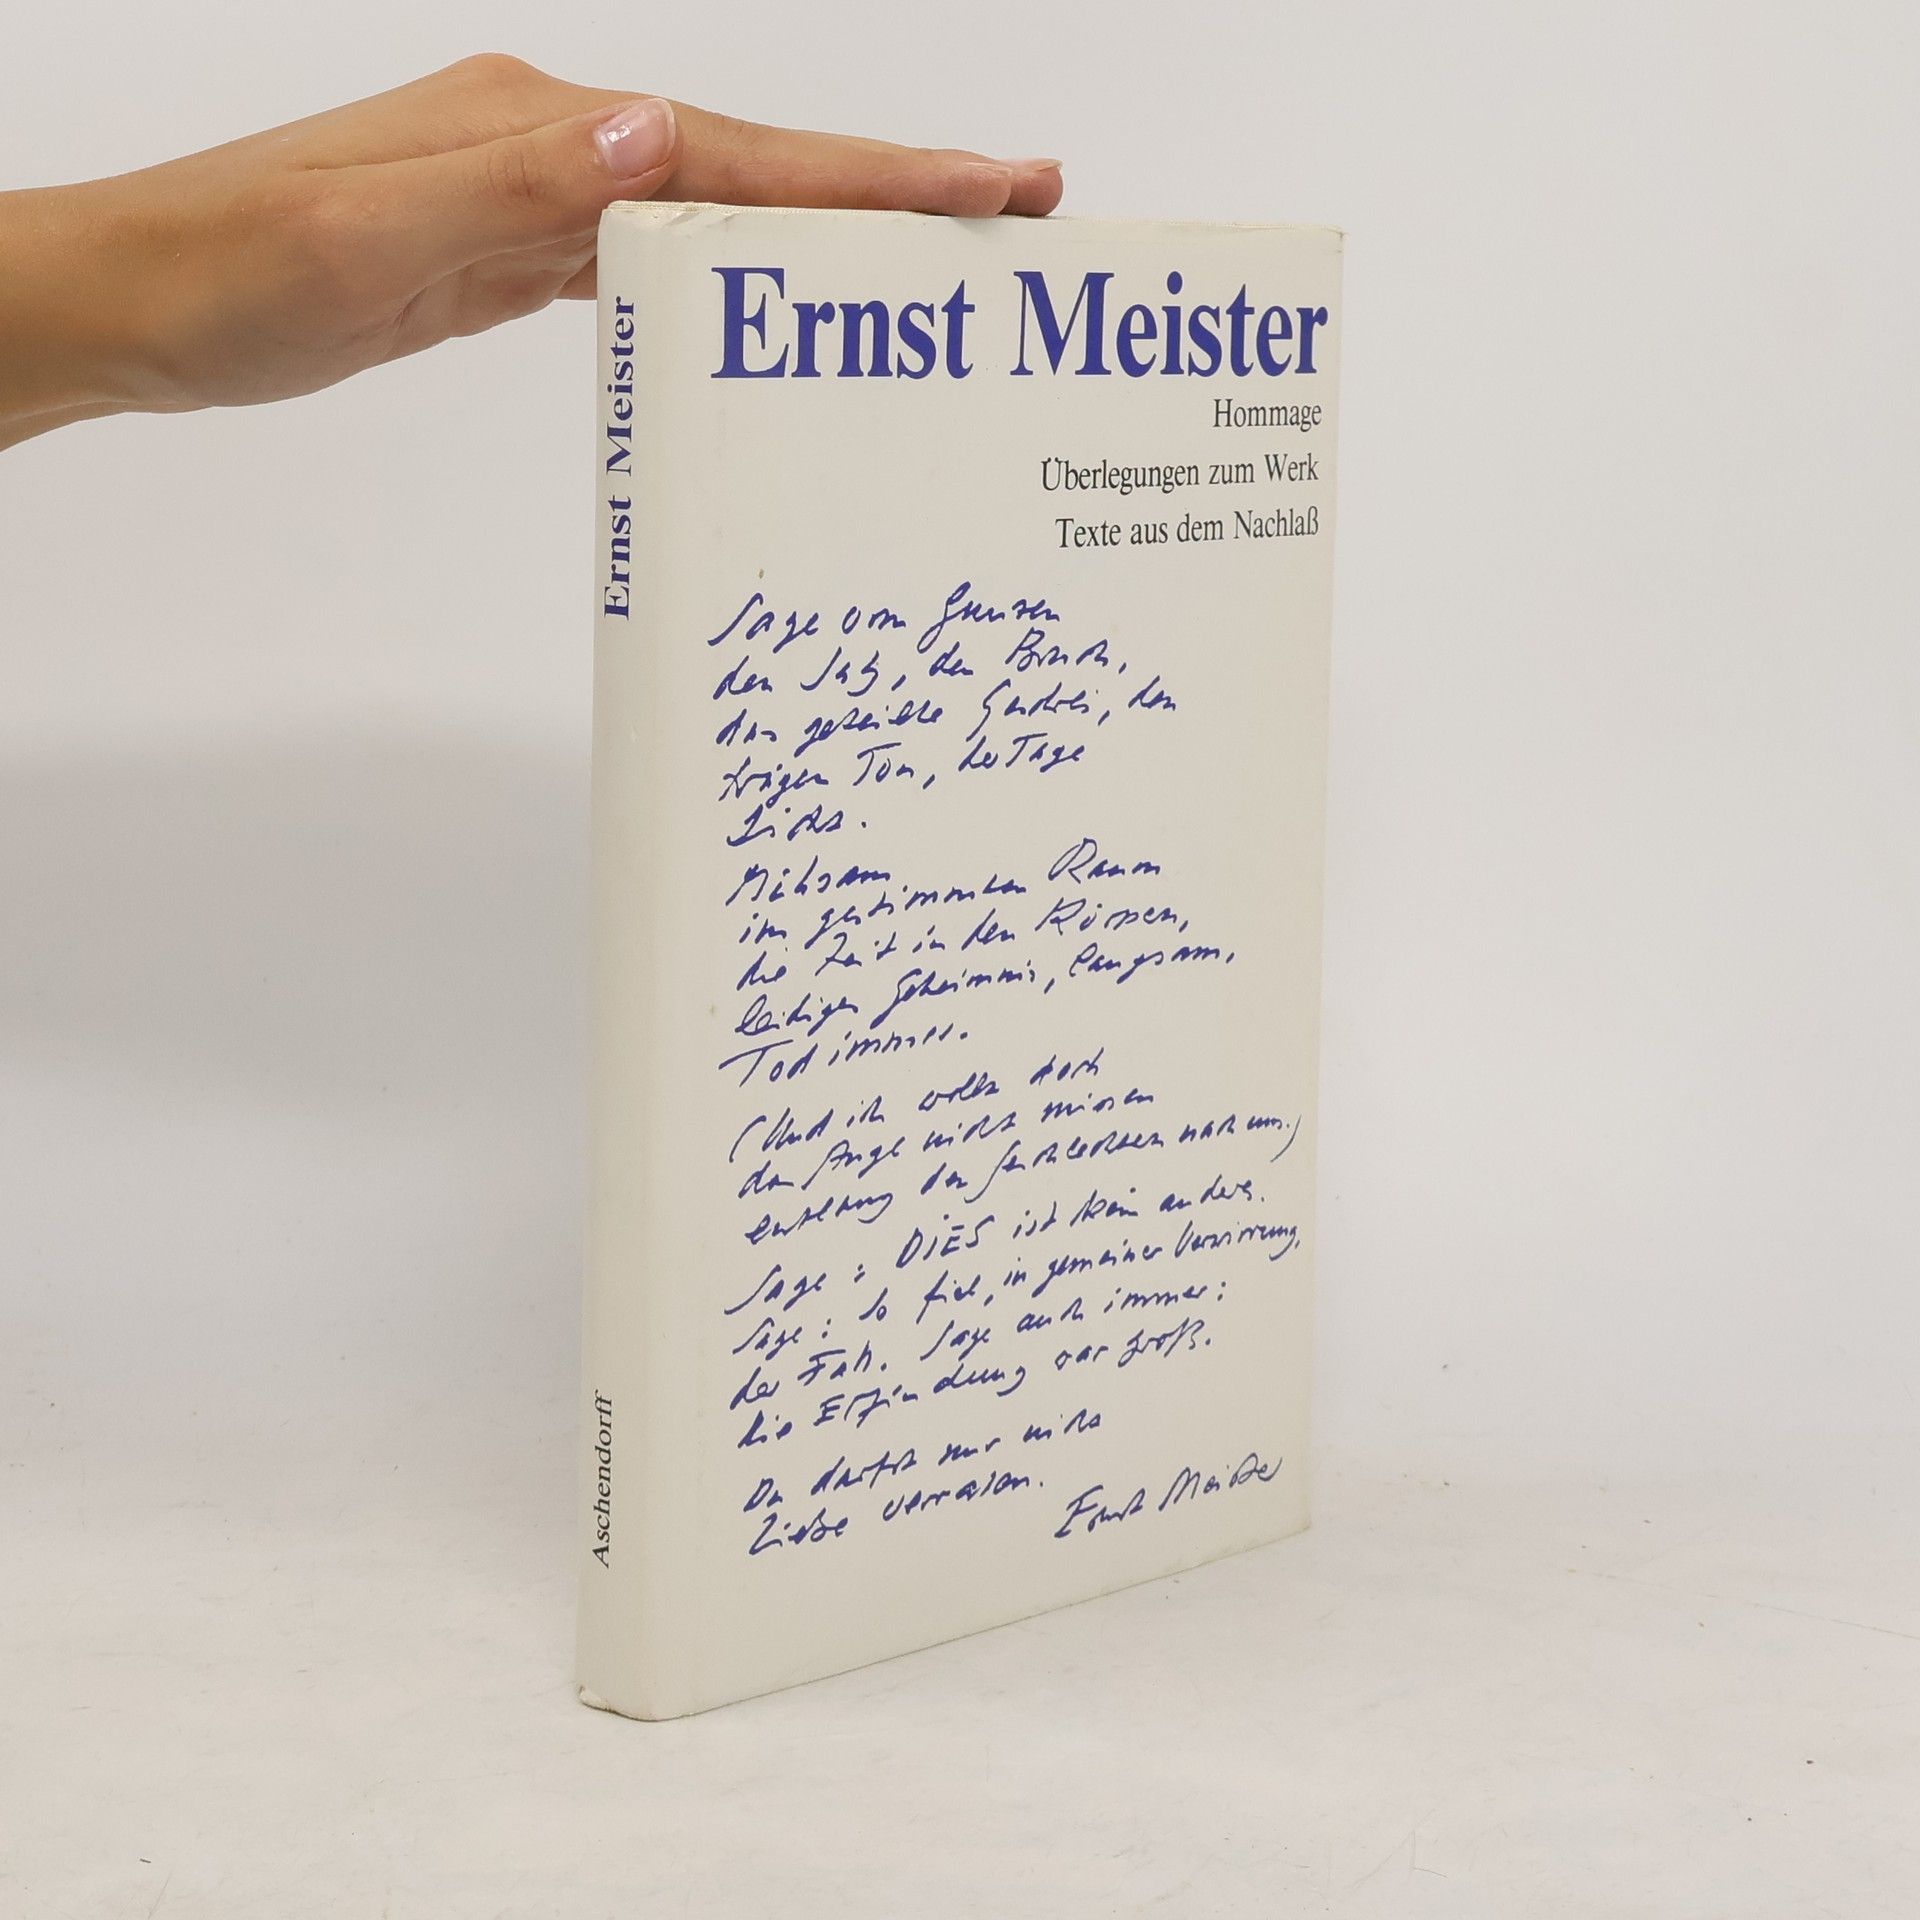 Ernst Meister
Aschendorff
Ernst Meister
Hommage
Überlegungen zum Werk
Texte aus dem Nachlaß
Sage vom Ganzen
den Satz, den Bruch,
das geteilte Geschrei, den
trägen Ton, der Tage
Licht.
Mühsam
im gestimmten Raum
die Zeit in den Körpern,
leidiges Geheimnis, langsam,
Tod immer.
(Und ich wollte doch
das Auge nicht missen
entlang den Geschlechtern nach uns.)
Sage: DIES ist kein andres.
Sage: So fiel, in gemeiner Verwirrung,
der Fall. Sage auch immer:
die Erfindung war groß.
Du darfst nur nicht
Liebe verraten.
Ernst Meister